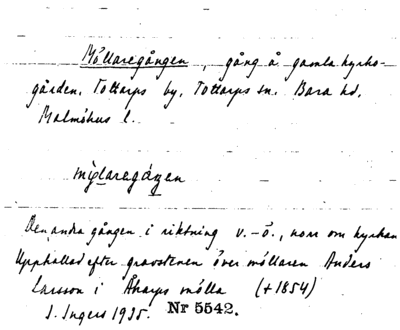 Möllaregången, gång å gamla kyrko-
gården, Tottarps by, Tottarps sn. Bara hd,
Malmöhus l.
Den andra gången i riktning v.-ö., norr om kyrkan
Uppkallad efter gravstenen över möllaren Anders
Larsson i Åkarps mölla (+1854)
I. Ingers 1935. Nr 5542.